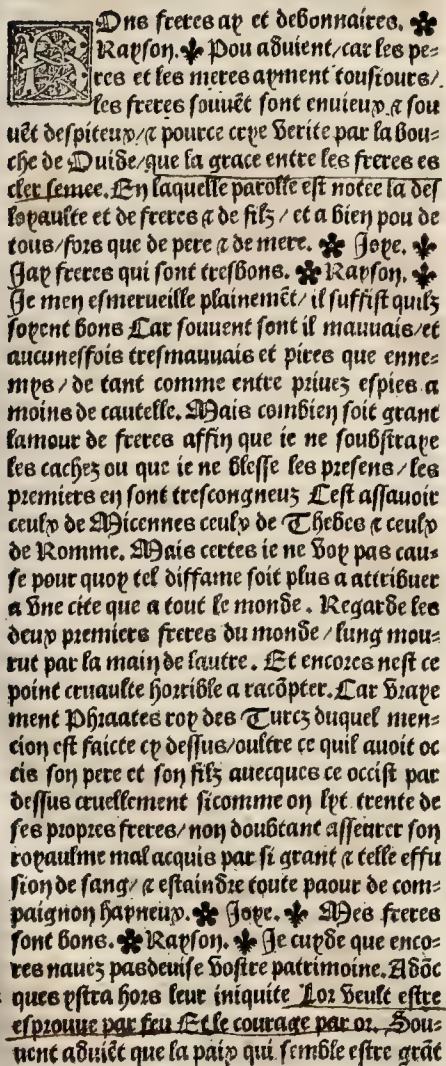 BOns freres ay et debonnaires. ✽
Rayson. ⚜ Pou aduient/car les pe=
res et les meres ayment tousiours/
les freres souuẽt sont enuieux ⁊ sou
uẽt despiteux/⁊ pource crye Verite par la bou=
che de Ouide/que la grace entre les freres es
cler semee. En laquelle parolle est notee la des
loyaulte et de freres ⁊ de filz / et a bien pou de
tous/fors que de pere ⁊ de mere. ✽ Joye. ⚜
Jay freres qui sont tresbons. ✽ Rayson. ⚜
Je men esmerueille plainemẽt/ il suffist quilz
soyent bons Car souuent sont il mauuais/et
aucunesfois tresmauuais et pires que enne=
mys / de tant comme entre priuez espies a
moins de cautelle. Mais combien soit grant
lamour de freres affin que ie ne soubstraye
les cachez ou que ie ne blesse les presens / les
premiers en sont trescongneuz Cest assauoir
ceulx de Micennes ceulx de Thebes ⁊ ceulx
de Romme. Mais certes ie ne voy pas cau=
se pour quoy tel diffame soit plus a attribuer
a vne cite que a tout le monde . Regarde les
deux premiers freres du monde / lung mou=
rut par la main de lautre. Et encores nest ce
point cruaulte horrible a racõpter. Car vraye
ment Phraates roy des Turcz duquel men=
cion est faicte cy dessus/oultre ce quil auoit oc
cis son pere et son filz auecques ce occist par
dessus cruellement sicomme on lyt trente de
ses propres freres/ non doubtant asseurer son
royaulme mal acquis par si grant ⁊ telle effu
sion de sang/ ⁊ estaindre toute paour de com=
paignon hayneux. ✽ Joye. ⚜ Mes freres
sont bons. ✽ Rayson. ⚜ Je cuyde que enco=
res nauez pas deuise vostre patrimoine. Adõc
ques ystra hors leur iniquite Lor veult estre
esprouue par feu Et le courage par or. Sou=
uent aduiẽt que la paix qui semble estre grãt